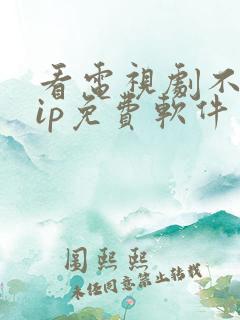 看電視劇不
ip免費軟件
圖熙熙
未经同意禁止转载